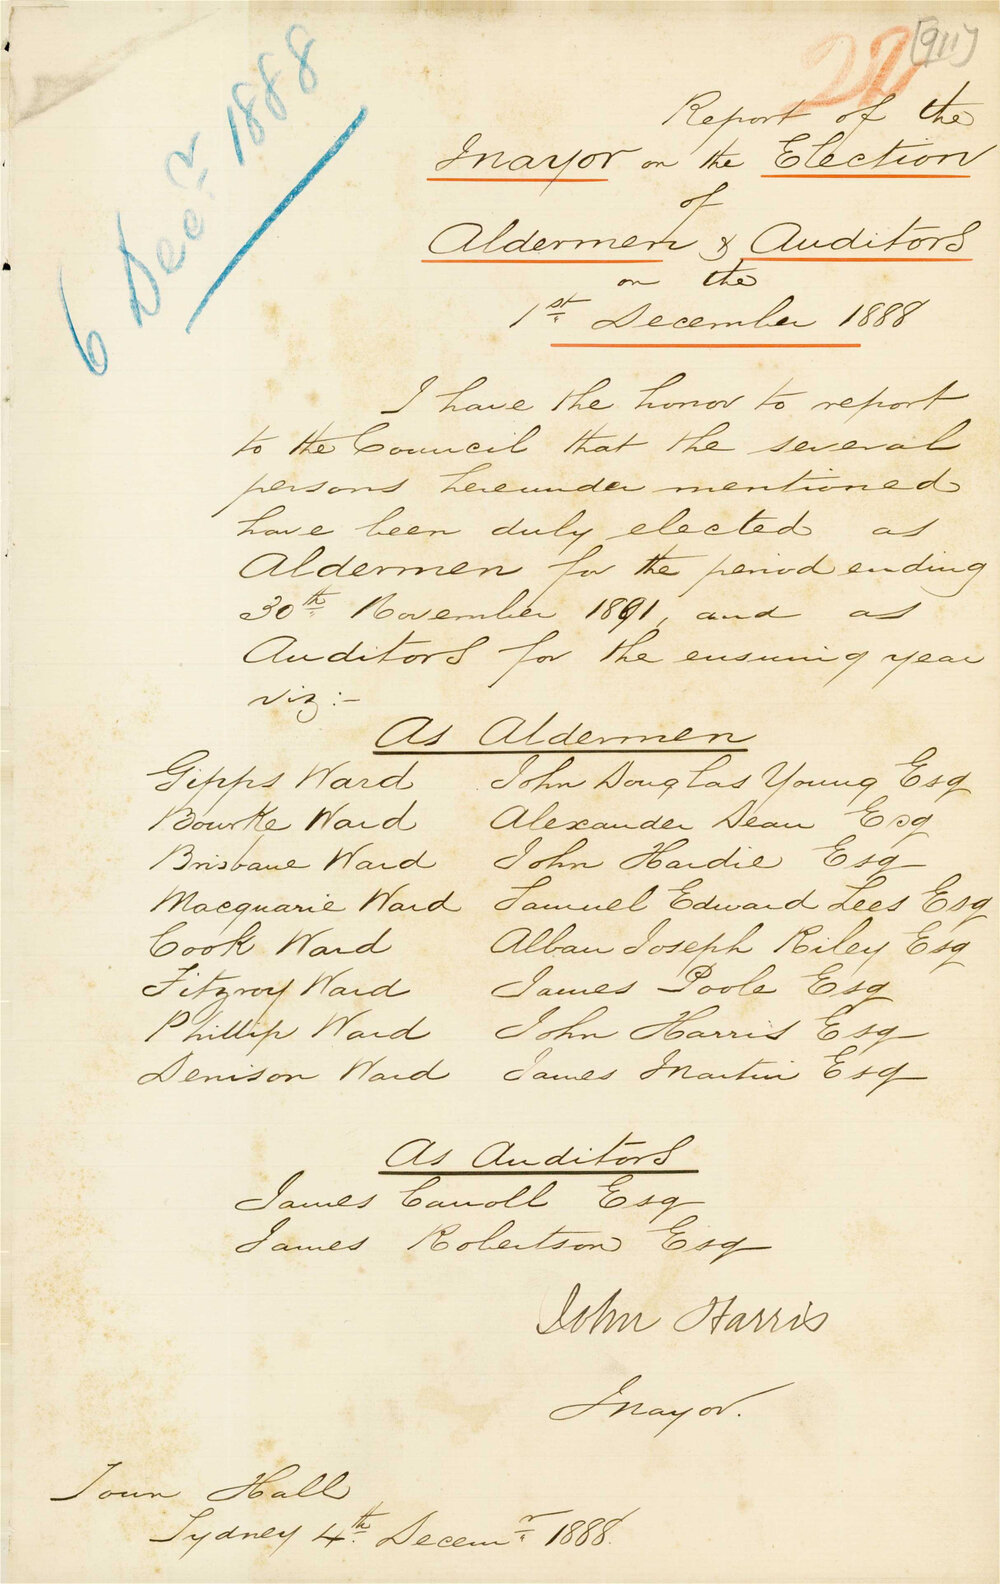 [911]
22
6 Decr 1888
Report of the
Mayor on the Election
of
Aldermen & Auditors
on the
1st December 1888
I have the honor to report
to the Council that the several
persons hereunder mentioned
have been duly elected as
Aldermen for the period ending
30th November 1891, and as
Auditors for the ensuing year
viz:-
As Aldermen
Gipps Ward John Douglas Young Esq
Bourke Ward Alexander Dean Esq
Brisbane Ward John Hardie Esq
Macquarie Ward Samuel Edward Lees Esq
Cook Ward Alban Joseph Riley Esq
Fitzroy Ward James Poole Esq
Phillip Ward John Harris Esq
Denison Ward James Martin Esq
As Auditors
James Carroll Esq
James Robertson Esq
John Harris
Mayor.
Town Hall
Sydney 4th Decemr 1888.